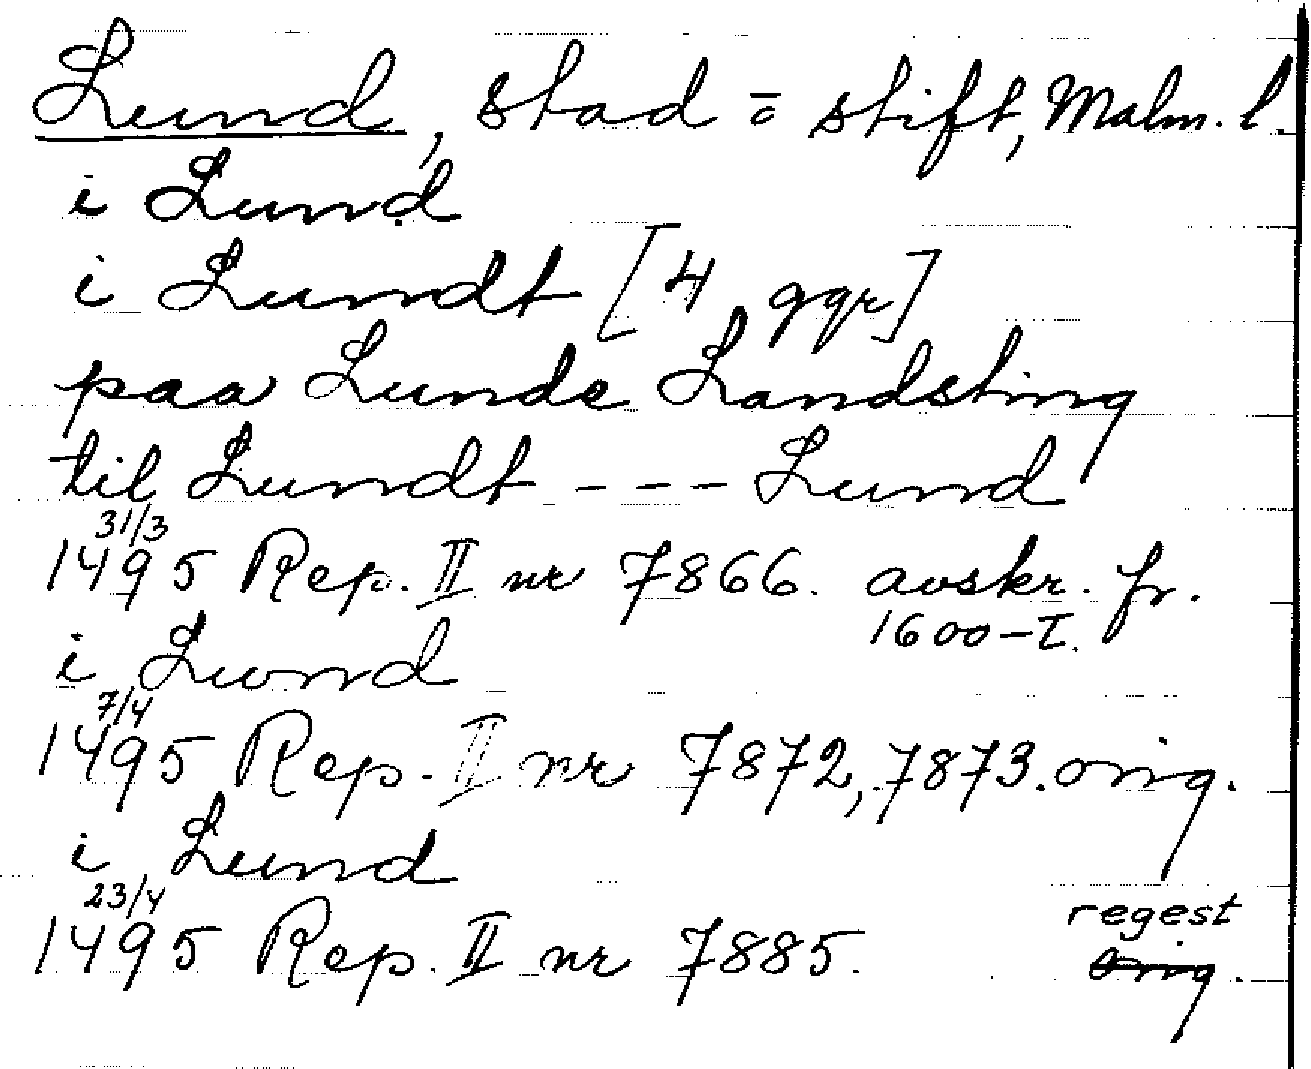 Lund, stad o stift, Malm. l.
i Lund
i Lundt [4 ggr]
paa Lunde Landsting
til Lundt - - - Lund
31/3
1495 Rep. II nr 7866. avskr. fr.
1600-T.
i Lwnd
7/4
1495 Rep. II nr 7872, 7873. orig.
i Lund
23/4
regest
1495 Rep. II nr 7885. Orig.